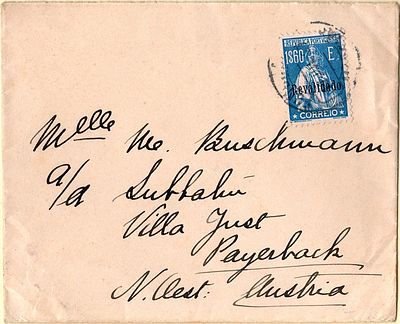 REPUBLICA PORTUGUESA
1$60 E.
Revalidado
CORREIO
Melle M. Buschmann
a/d Subbahn
Villa Just
Payerback
N. Oest: Austria